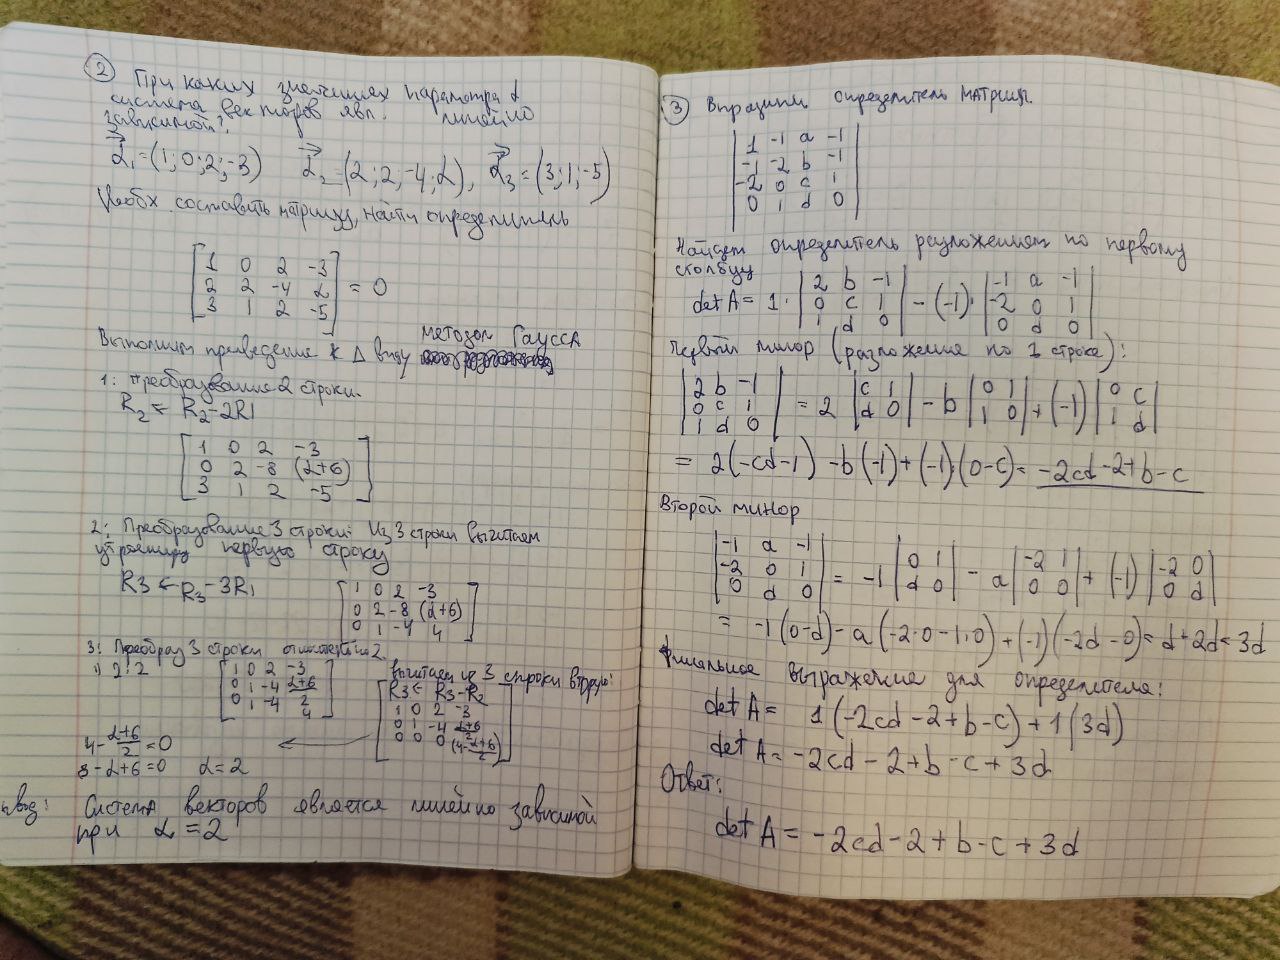 2 При каких значениях параметра α
система векторов явл. линейно
зависимой?
α₁=(1;0;2;-3) α₂=(2;2,-4;α), α₃=(3;1;-5)
Необх составить матрицу, найти определитель
[1 0 2 -3
2 2 -4 α
3 1 2 -5] = 0
Выполним приведение к Δ виду методом Гаусса
1: Преобразование 2 строки.
R₂ ← R₂-2R1
[1 0 2 -3
0 2 -8 (α+6)
3 1 2 -5]
2: Преобразование 3 строки: Из 3 строки вычитаем
первую строку
R3 ← R₃-3R₁
[1 0 2 -3
0 2 -8 (α+6)
0 1 -4 4]
3: Преобраз 3 строки
1) 2:2
[1 0 2 -3
0 1 -4 α+6/2
0 1 -4 4]
вычитаем из 3 строки вторую:
R3 ← R3-R₂
[1 0 2 -3
0 1 -4 α+6/2
0 0 0 (4-α+6/2)]
4-α+6/2=0
8-α+6=0 α=2
Система векторов является линейно зависимой
при α=2
3 определитель матриц.
|1 -1 a -1
-1 -2 b -1
-2 0 c 1
0 1 d 0|
Найдем определитель разложением по первому
столбцу
det A = 1· |2 b -1
0 c 1
1 d 0| - (-1)· |-1 a -1
-2 0 1
0 d 0|
Первый минор (разложение по 1 строке):
|2 b -1
0 c 1
1 d 0| = 2 |c 1
d 0| - b |0 1
1 0| + (-1) |0 c
1 d|
= 2(-cd-1) -b(-1)+(-1)(0-c)= -2cd-2+b-c
Второй минор
|-1 a -1
-2 0 1
0 d 0| = -1 |0 1
d 0| - a |-2 1
0 0| + (-1) |-2 0
0 d|
= -1(0-d)-a(-2·0-1·0)+(-1)(-2d-0)= d+2d=3d
Финальное выражение для определителя:
det A= 1(-2cd-2+b-c)+1(3d)
det A= -2cd-2+b-c+3d
Ответ:
det A = -2cd-2+b-c+3d